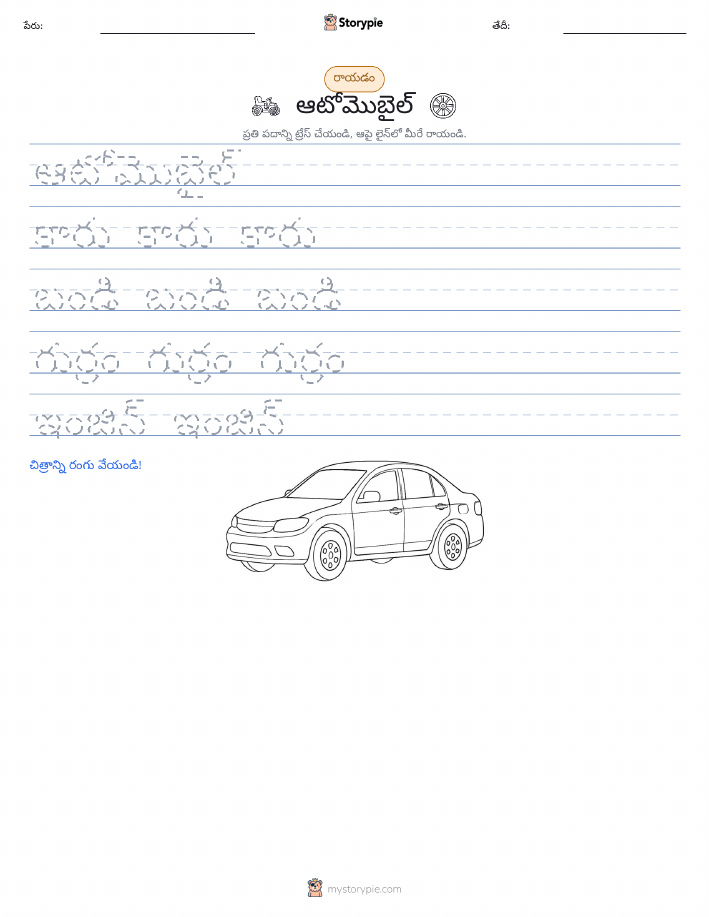 పేరు:
Storypie
తేదీ:
రాయడం
ఆటోమొబైల్
ప్రతి పదాన్ని ట్రేస్ చేయండి, ఆపై లైన్‌లో మీరే రాయండి.
ఆటోమొబైల్
కారు కారు కారు
బండి బండి బండి
గుర్రం గుర్రం గుర్రం
ఇంజిన్ ఇంజిన్
చిత్రాన్ని రంగు వేయండి!
mystorypie.com